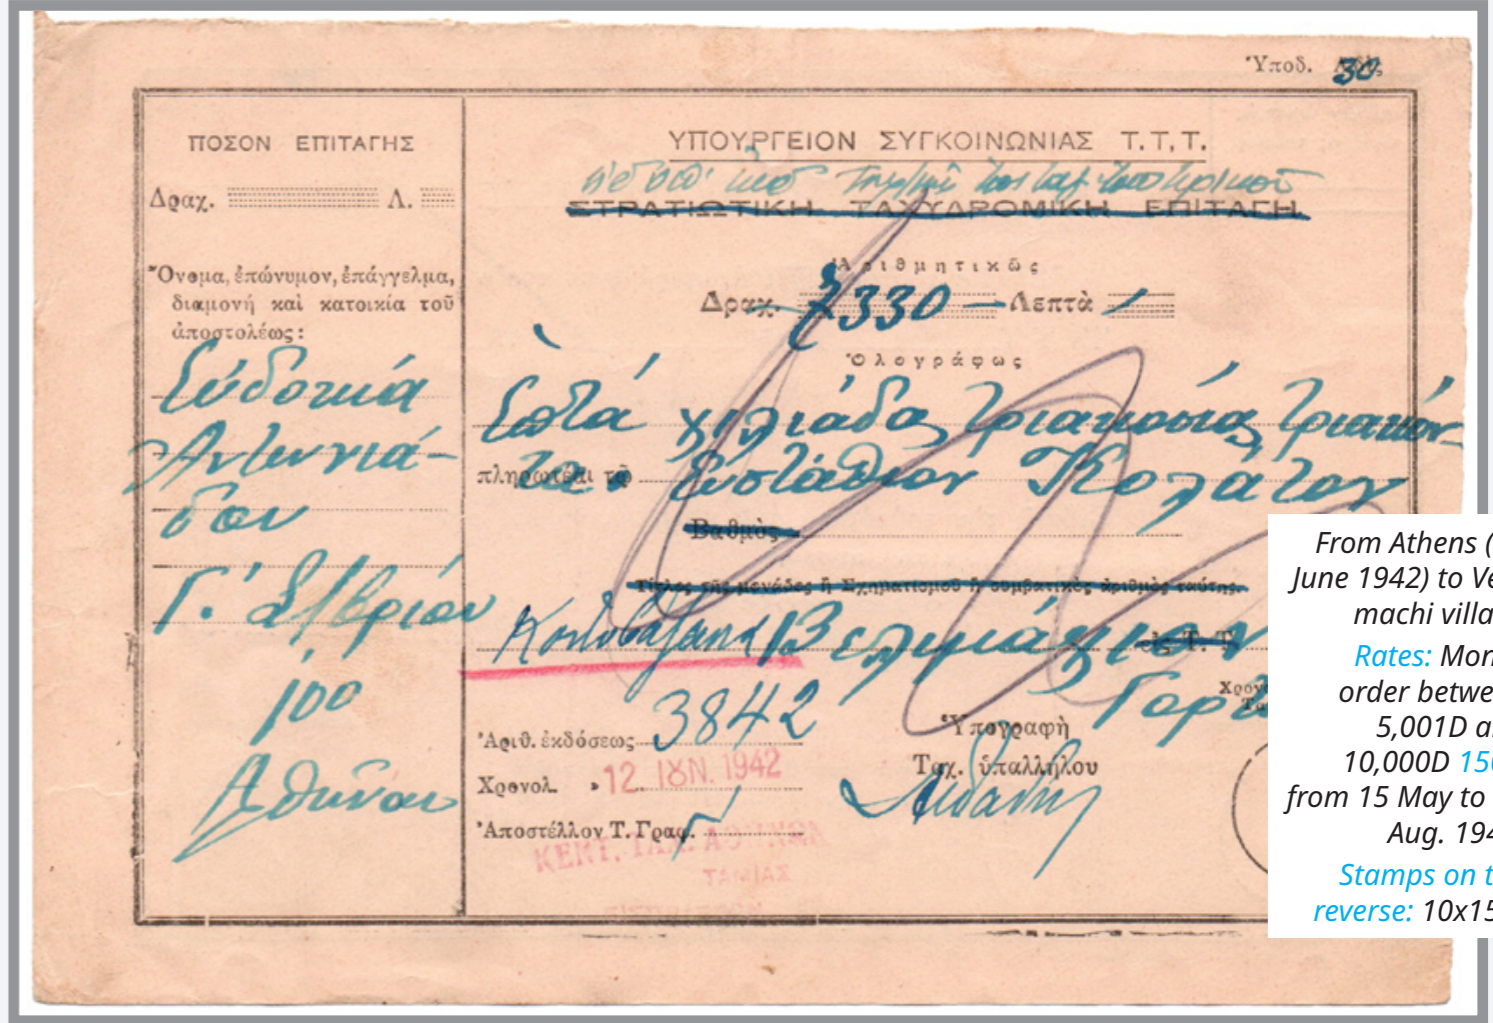 Ὑποδ. 30
ΠΟΣΟΝ ΕΠΙΤΑΓΗΣ
Δραχ. Λ.
Ὄνομα, ἐπώνυμον, ἐπάγγελμα,
διαμονή καὶ κατοικία τοῦ
ἀποστολέως:
Εὐδοκία
Ἀντωνιά-
δου
Γ' Σ/βρίου
100
Ἀθῆναι
ΥΠΟΥΡΓΕΙΟΝ ΣΥΓΚΟΙΝΩΝΙΑΣ Τ.Τ.Τ.
ΣΤΡΑΤΙΩΤΙΚΗ ΤΑΧΥΔΡΟΜΙΚΗ ΕΠΙΤΑΓΗ
Ἀριθμητικῶς
Δραχ. 7330 — Λεπτὰ /
Ὁλογράφως
Ἑπτὰ χιλιάδας τριακοσίας τριακόν-
πληρωτέαι τῷ τα Εὐστάθιον Κολάτον
Βαθμὸς
Τίτλος τῆς μονάδος ἢ Σχηματισμοῦ ἢ συμβατικὸς ἀριθμὸς ταύτης.
Βελημάχιον εἰς Τ. Τ.
Γορτ
Ἀριθ. ἐκδόσεως 3842
Χρονολ. » 12 ΙΟΥΝ. 1942
Ἀποστέλλον Τ. Γραφ.
Ὑπογραφὴ
Ταχ. ὑπαλλήλου
ΚΕΝΤ. ΤΑΧ. ΑΘΗΝΩΝ
ΤΑΜΙΑΣ
From Athens (
June 1942) to Ve
machi villa
Rates: Mon
order betwe
5,001D a
10,000D 15
from 15 May to
Aug. 194
Stamps on t
reverse: 10x15